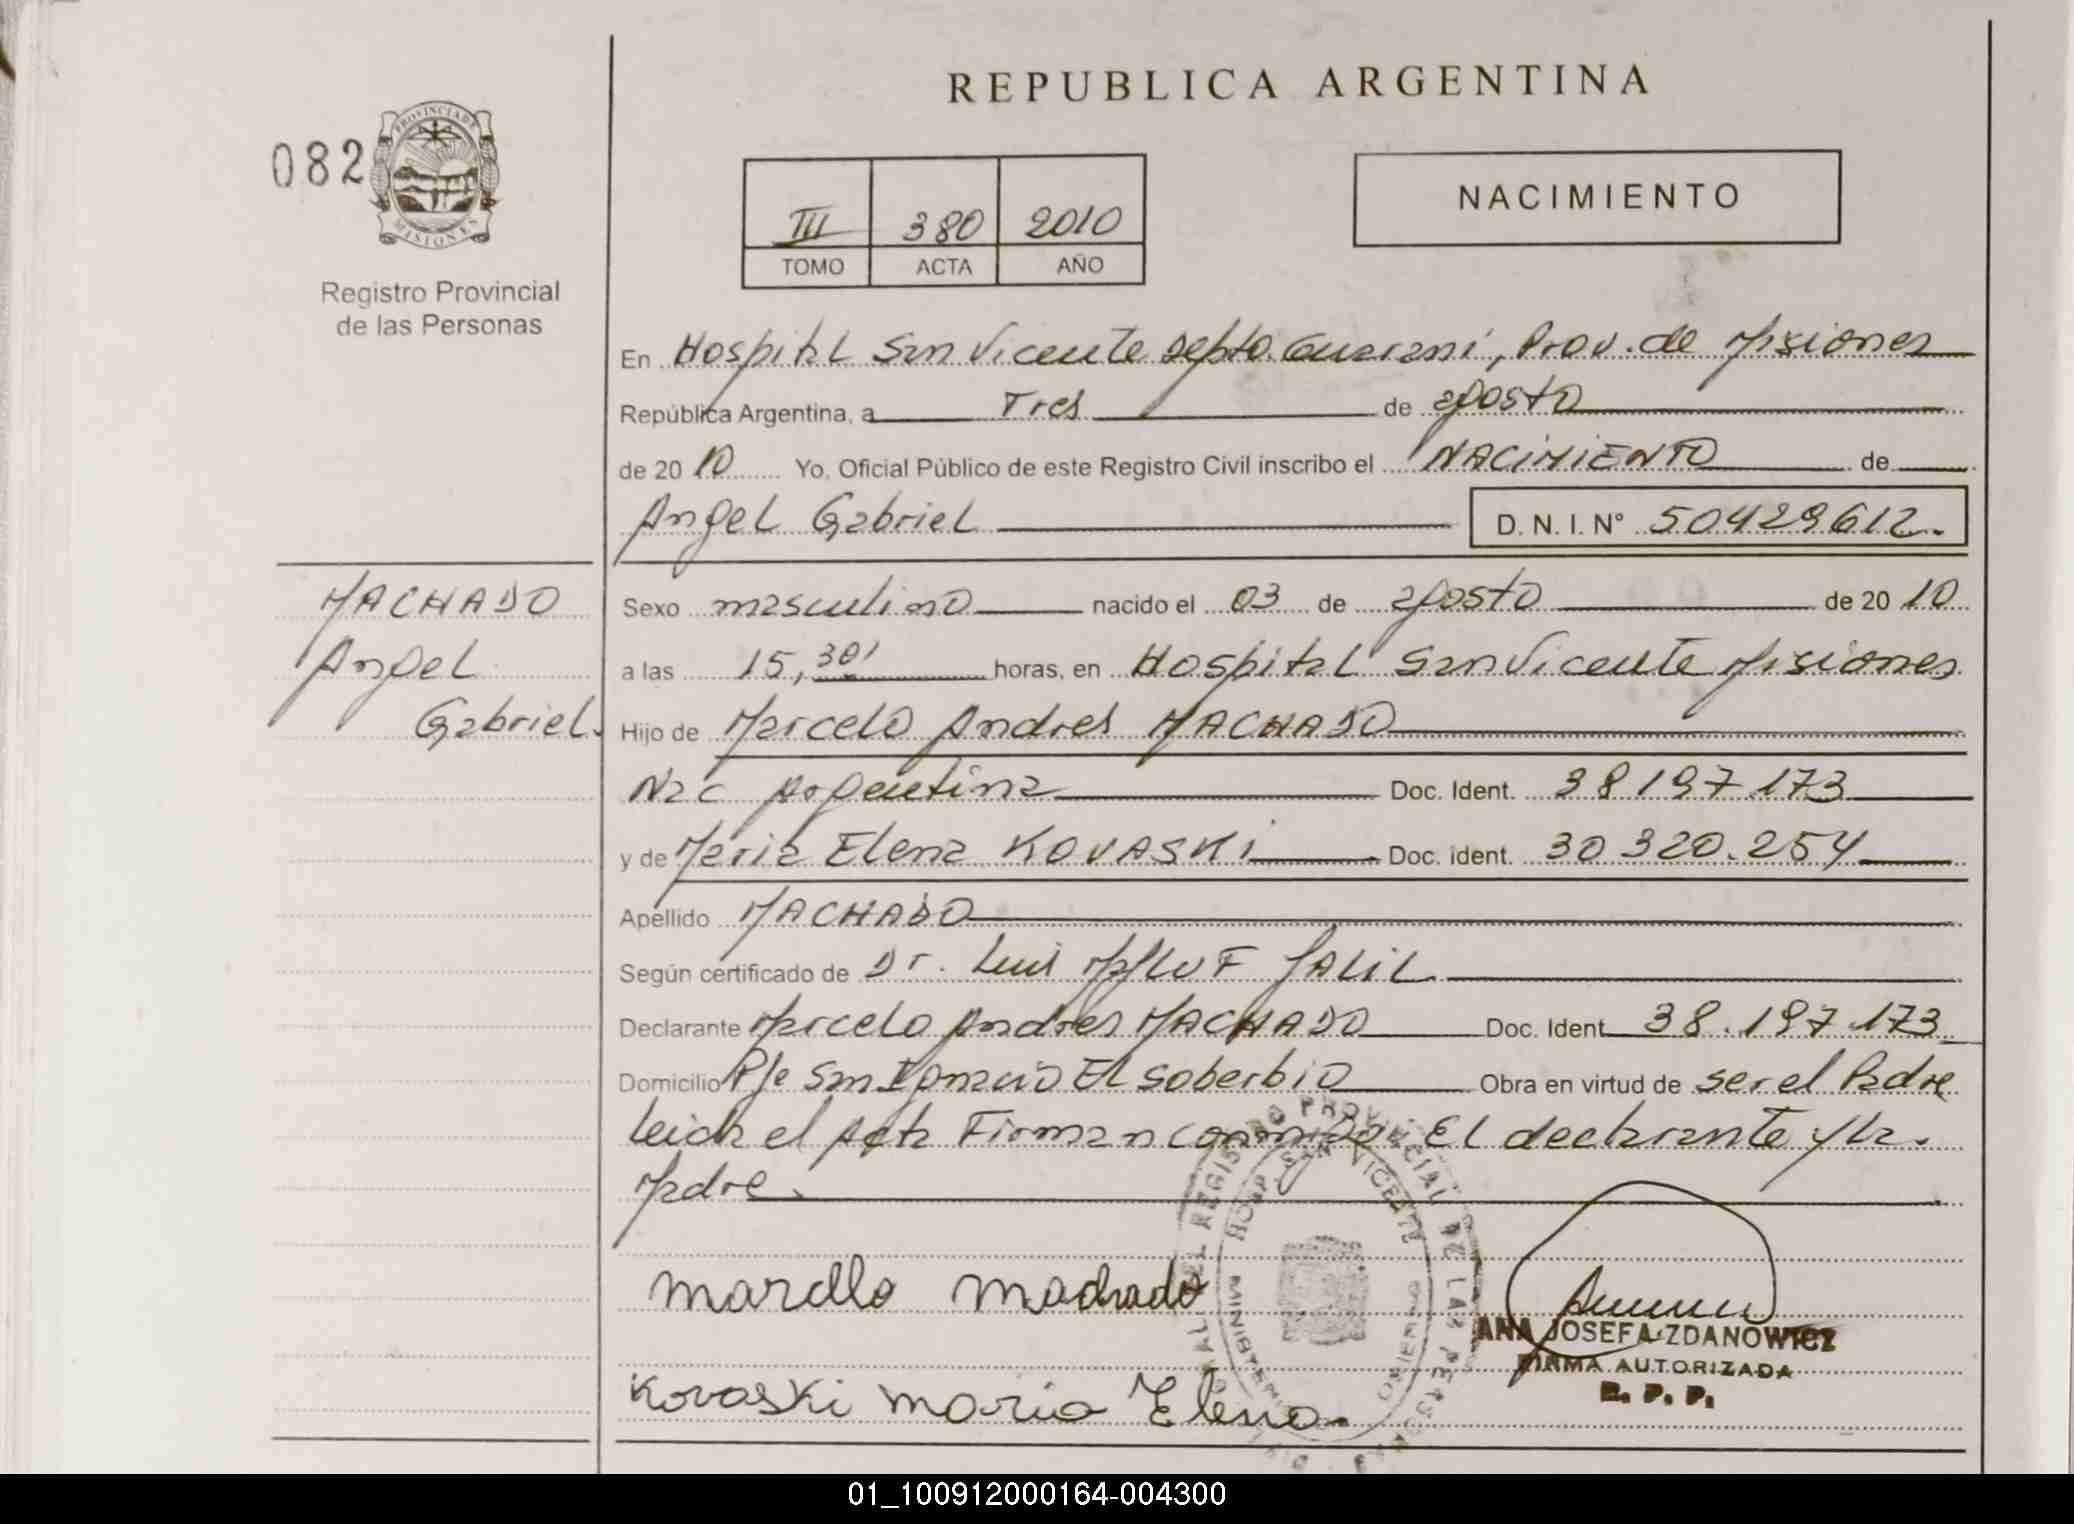 REPUBLICA ARGENTINA
082
PROVINCIA DE
MISIONES
Registro Provincial
de las Personas
III 380 2010
TOMO ACTA AÑO
NACIMIENTO
En Hospital San Vicente Depto. Guarani, Prov. de Misiones
República Argentina, a Tres de agosto
de 20 10 Yo, Oficial Público de este Registro Civil inscribo el NACIMIENTO de
Angel Gabriel D. N. I. N° 50429612.
MACHADO
Angel
Gabriel.
Sexo masculino nacido el 03 de agosto de 20 10
a las 15,30' horas, en Hospital San Vicente Misiones
Hijo de Marcelo Andres MACHADO
Nac Argentina Doc. Ident. 38197173
y de Maria Elena KOVASKI Doc. ident. 30 320.254
Apellido MACHADO
Según certificado de Dr. Luis MALUF JALIL
Declarante Marcelo Andres MACHADO Doc. Ident 38.197.173
Domicilio Pje San Ignacio El soberbio Obra en virtud de ser el Padre
Leida el Acta Firman conmigo El declarante y la
Madre.
Marcelo Machado
Kovaski Maria Elena
REGISTRO PROVINCIAL DE LAS PERSONAS
HOSP. SAN VICENTE
ANA JOSEFA ZDANOWICZ
FIRMA AUTORIZADA
R. P. P.
01_100912000164-004300